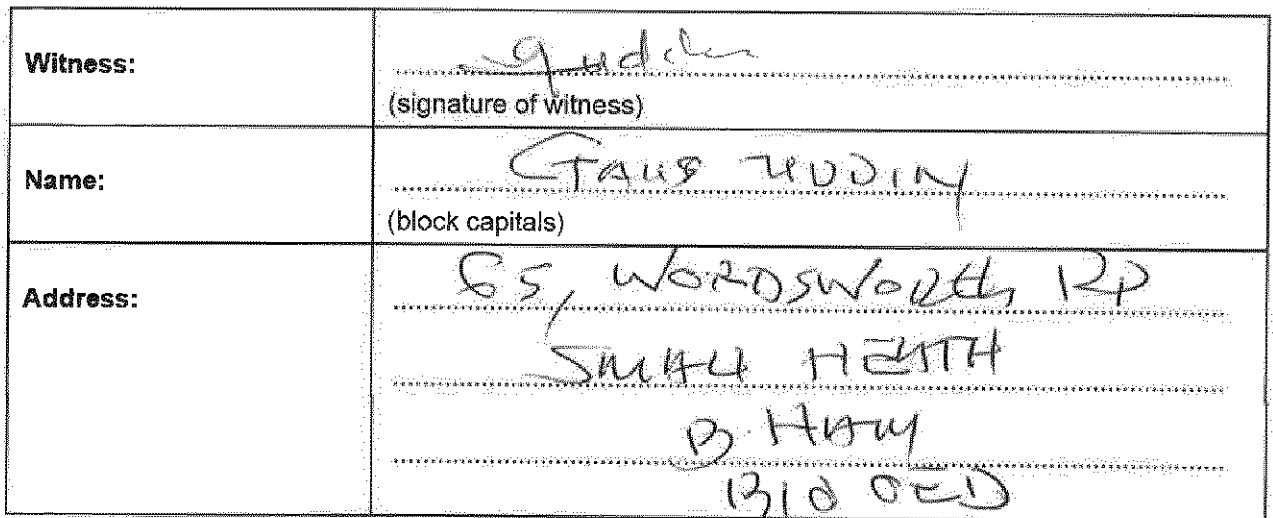 Witness:
(signature of witness)
Name:
GAUS UDDIN
(block capitals)
Address:
65, WORDSWORTH RD
SMALL HEATH
B.HAM
B10 0ED